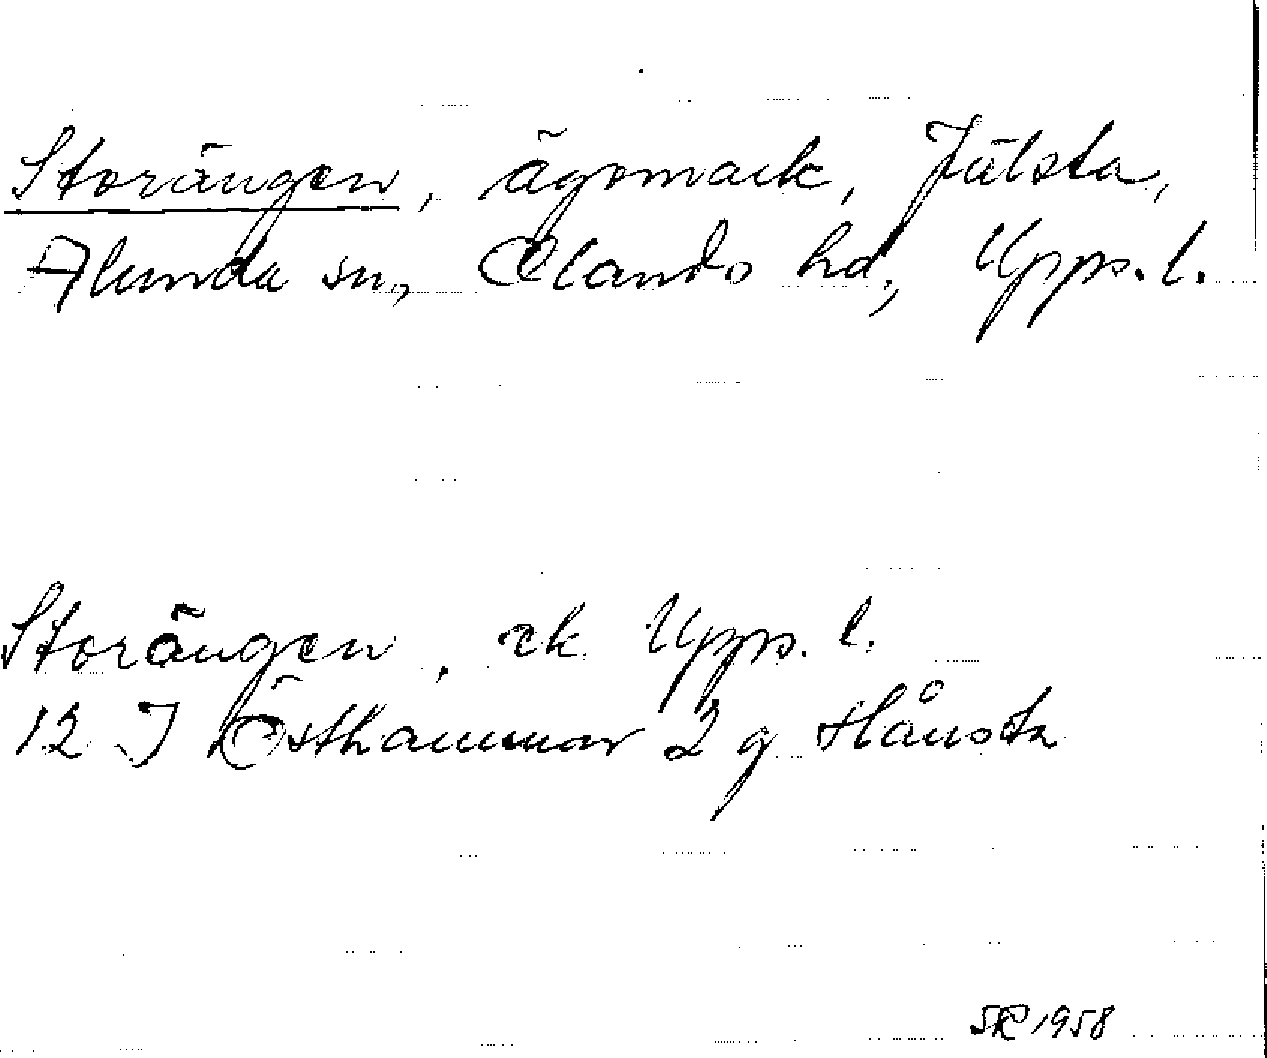 Storängen, ägomark, Jälsta,
Alunda sn, Olands hd, Upps. l.
Storängen, ek. Upps. l.
12 I Östhammar 2 g Hånsta
SR 1958